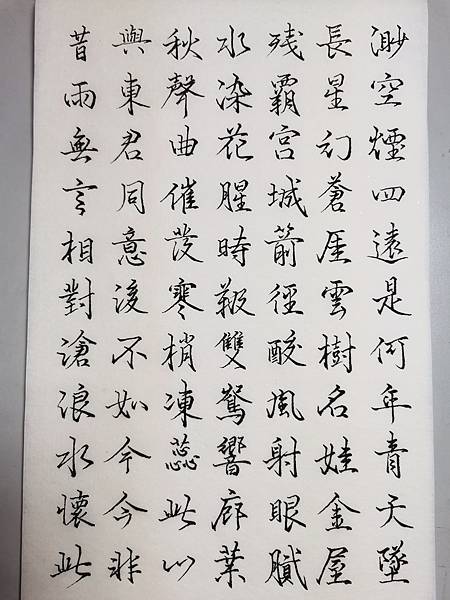 渺空煙四遠是何年青天墜
長星幻蒼厓雲樹名娃金屋
残霸宮城箭徑酸風射眼膩
水染花腥時靸雙鴛響廊葉
秋聲曲催發寒梢凍蕊此心
與東君同意後不如今今非
昔兩無言相對滄浪水懷此